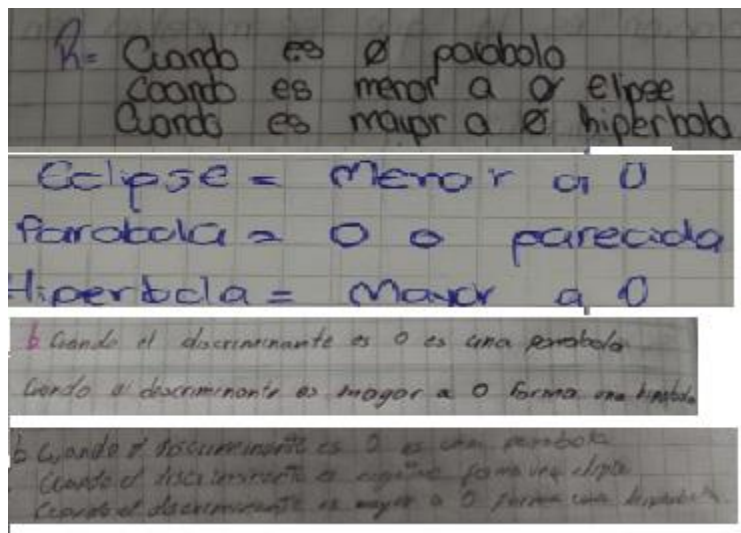 R= Cuando es Ø parabola
cuando es menor a Ø elipse
Cuando es mayor a Ø hiperbola
Eclipse = Menor a 0
Parabola = 0 o parecida
Hiperbola = Mayor a 0
b Cuando el discriminante es 0 es una parabola
Cuando el discriminante es mayor a 0 forma una hiperbola
b Cuando el discriminante es 0 es una parabola
Cuando el discriminante es forma una elipse
Cuando el discriminante es mayor a 0 forma una hiperbola